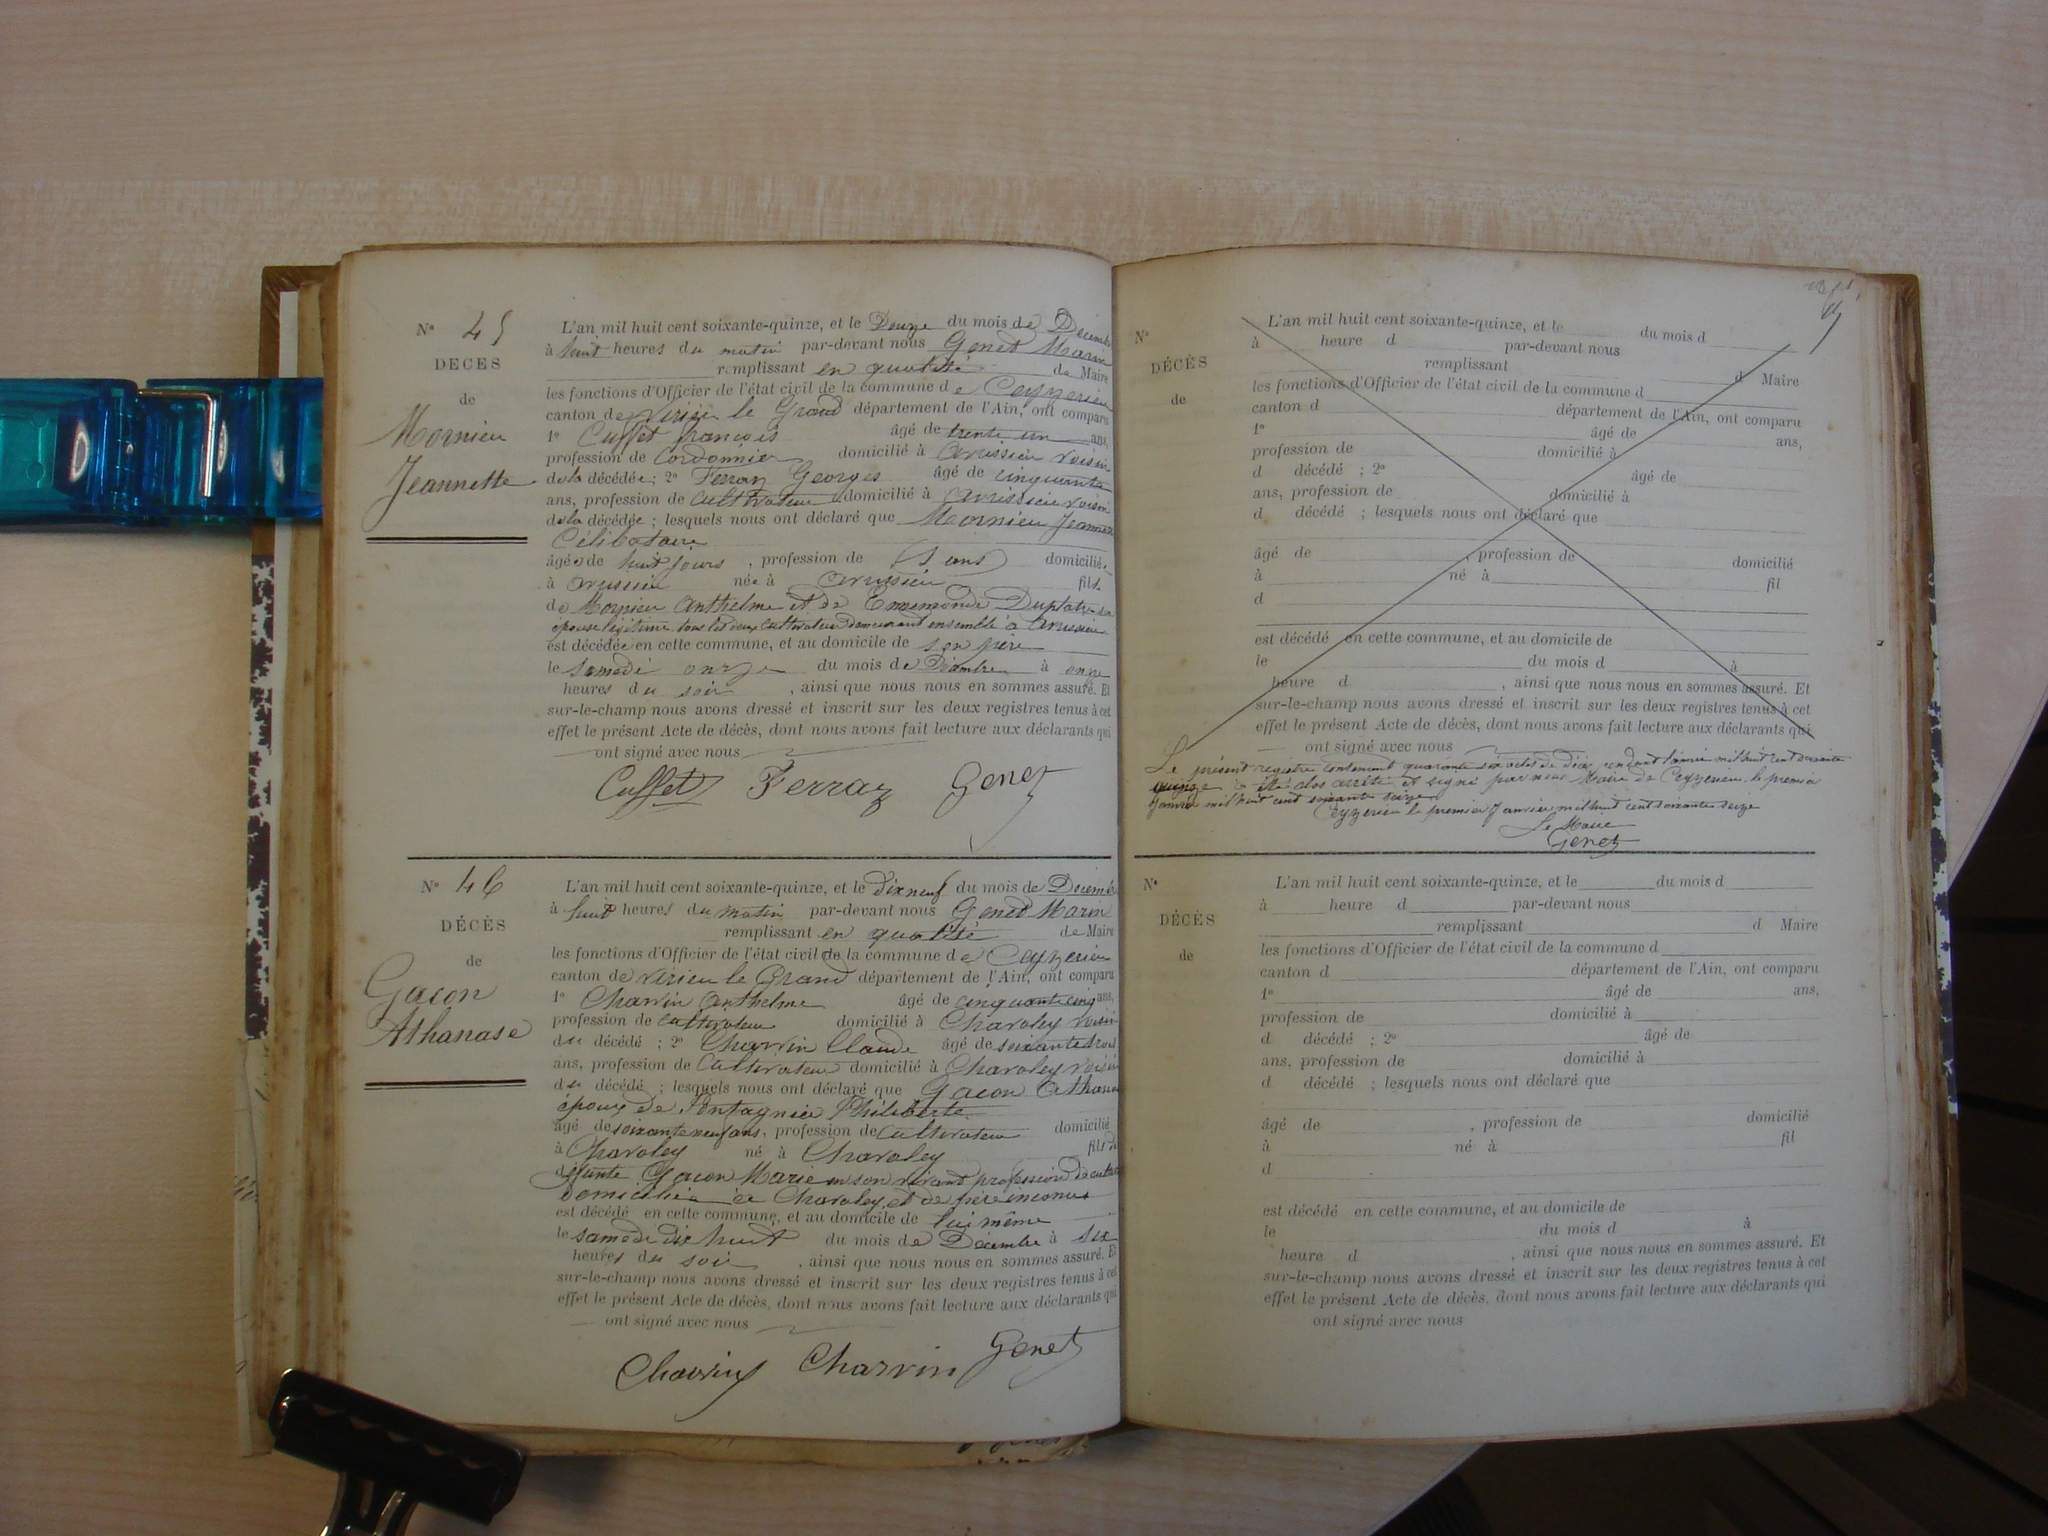 N° 45
DÉCÈS
de
Mornieu
Jeannette
L'an mil huit cent soixante-quinze, et le Douze du mois de Décembre
à huit heures du matin par-devant nous Genet Marin
remplissant en qualité de Maire
les fonctions d'Officier de l'état civil de la commune de Ceyzerieu
canton de Virieu le Grand département de l'Ain, ont comparu
1° Cuffet françois âgé de trente un ans,
profession de Cordonnier domicilié à avrissieu voisin
de la décédée ; 2° Ferraz Georges âgé de cinquante
ans, profession de Cultivateur domicilié à avrissieu voisin
de la décédée ; lesquels nous ont déclaré que Mornieu Jeannette
Célibataire
âgée de huit jours , profession de (sans) domiciliée
à avrissieu née à avrissieu fille
de Mornieu Anthelme et de Ennemonde Duplatre son
épouse légitime tous les deux Cultivateur demeurant ensemble à avrissieu
est décédée en cette commune, et au domicile de son père
le samedi onze du mois de Décembre à onze
heures du soir , ainsi que nous nous en sommes assuré. Et
sur-le-champ nous avons dressé et inscrit sur les deux registres tenus à cet
effet le présent Acte de décès, dont nous avons fait lecture aux déclarants qui
ont signé avec nous
Cuffet Ferraz Genet
N° 46
DÉCÈS
de
Gacon
Athanase
L'an mil huit cent soixante-quinze, et le dix neuf du mois de Décembre
à huit heures du matin par-devant nous Genet Marin
remplissant en qualité de Maire
les fonctions d'Officier de l'état civil de la commune de Ceyzerieu
canton de Virieu le Grand département de l'Ain, ont comparu
1° Charvin Anthelme âgé de cinquante cinq ans,
profession de Cultivateur domicilié à Charoley voisin
du décédé ; 2° Charvin Claude âgé de soixante trois
ans, profession de Cultivateur domicilié à Charoley voisin
du décédé ; lesquels nous ont déclaré que Gacon Athanase
époux de Philiberte
âgé de soixante neuf ans, profession de Cultivateur domicilié
à Charoley né à Charoley fils de
défunte Gacon Marie en son vivant profession de
domiciliée à Charoley, et de père inconnus
est décédé en cette commune, et au domicile de lui même
le samedi dix huit du mois de Décembre à six
heures du soir , ainsi que nous nous en sommes assuré. Et
sur-le-champ nous avons dressé et inscrit sur les deux registres tenus à cet
effet le présent Acte de décès, dont nous avons fait lecture aux déclarants qui
ont signé avec nous
Charvin Charvin Genet
N°
DÉCÈS
de
L'an mil huit cent soixante-quinze, et le du mois d
à heure d par-devant nous
remplissant d Maire
les fonctions d'Officier de l'état civil de la commune d
canton d département de l'Ain, ont comparu
1° âgé de ans,
profession de domicilié à
d décédé ; 2° âgé de
ans, profession de domicilié à
d décédé ; lesquels nous ont déclaré que
âgé de , profession de domicilié
à né à fil
d
est décédé en cette commune, et au domicile de
le du mois d à
heure d , ainsi que nous nous en sommes assuré. Et
sur-le-champ nous avons dressé et inscrit sur les deux registres tenus à cet
effet le présent Acte de décès, dont nous avons fait lecture aux déclarants qui
ont signé avec nous
Le présent registre contenant quarante six actes de décès pendant l'année mil huit cent soixante
quinze a été clos arrêté et signé par nous Maire de Ceyzerieu le premier
Janvier mil huit cent soixante seize
Ceyzerieu le premier Janvier mil huit cent soixante seize
Le Maire
Genet
N°
DÉCÈS
de
L'an mil huit cent soixante-quinze, et le du mois d
à heure d par-devant nous
remplissant d Maire
les fonctions d'Officier de l'état civil de la commune d
canton d département de l'Ain, ont comparu
1° âgé de ans,
profession de domicilié à
d décédé ; 2° âgé de
ans, profession de domicilié à
d décédé ; lesquels nous ont déclaré que
âgé de , profession de domicilié
à né à fil
d
est décédé en cette commune, et au domicile de
le du mois d à
heure d , ainsi que nous nous en sommes assuré. Et
sur-le-champ nous avons dressé et inscrit sur les deux registres tenus à cet
effet le présent Acte de décès, dont nous avons fait lecture aux déclarants qui
ont signé avec nous